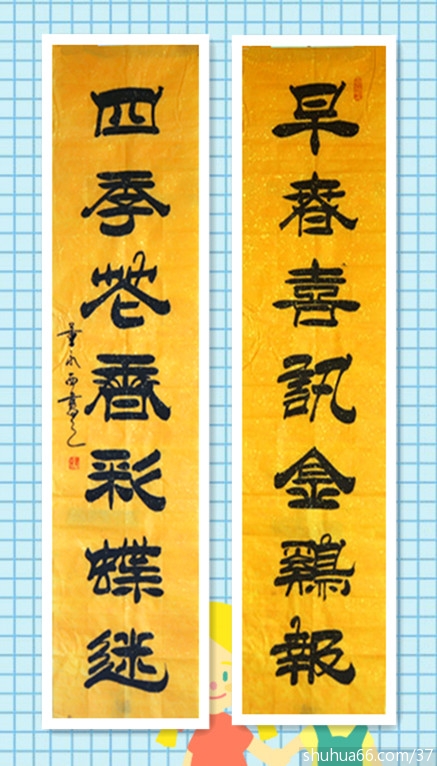 早春喜訊金鷄報
四季花香彩蝶迷
shuhua66.com/37